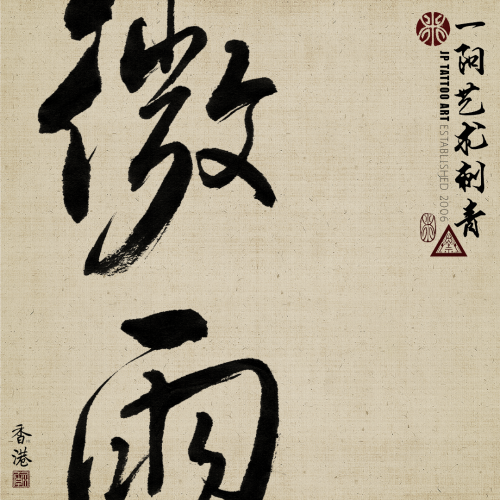 一阿艺术刺青
JP TATTOO ART ESTABLISHED 2006
微雨
香港